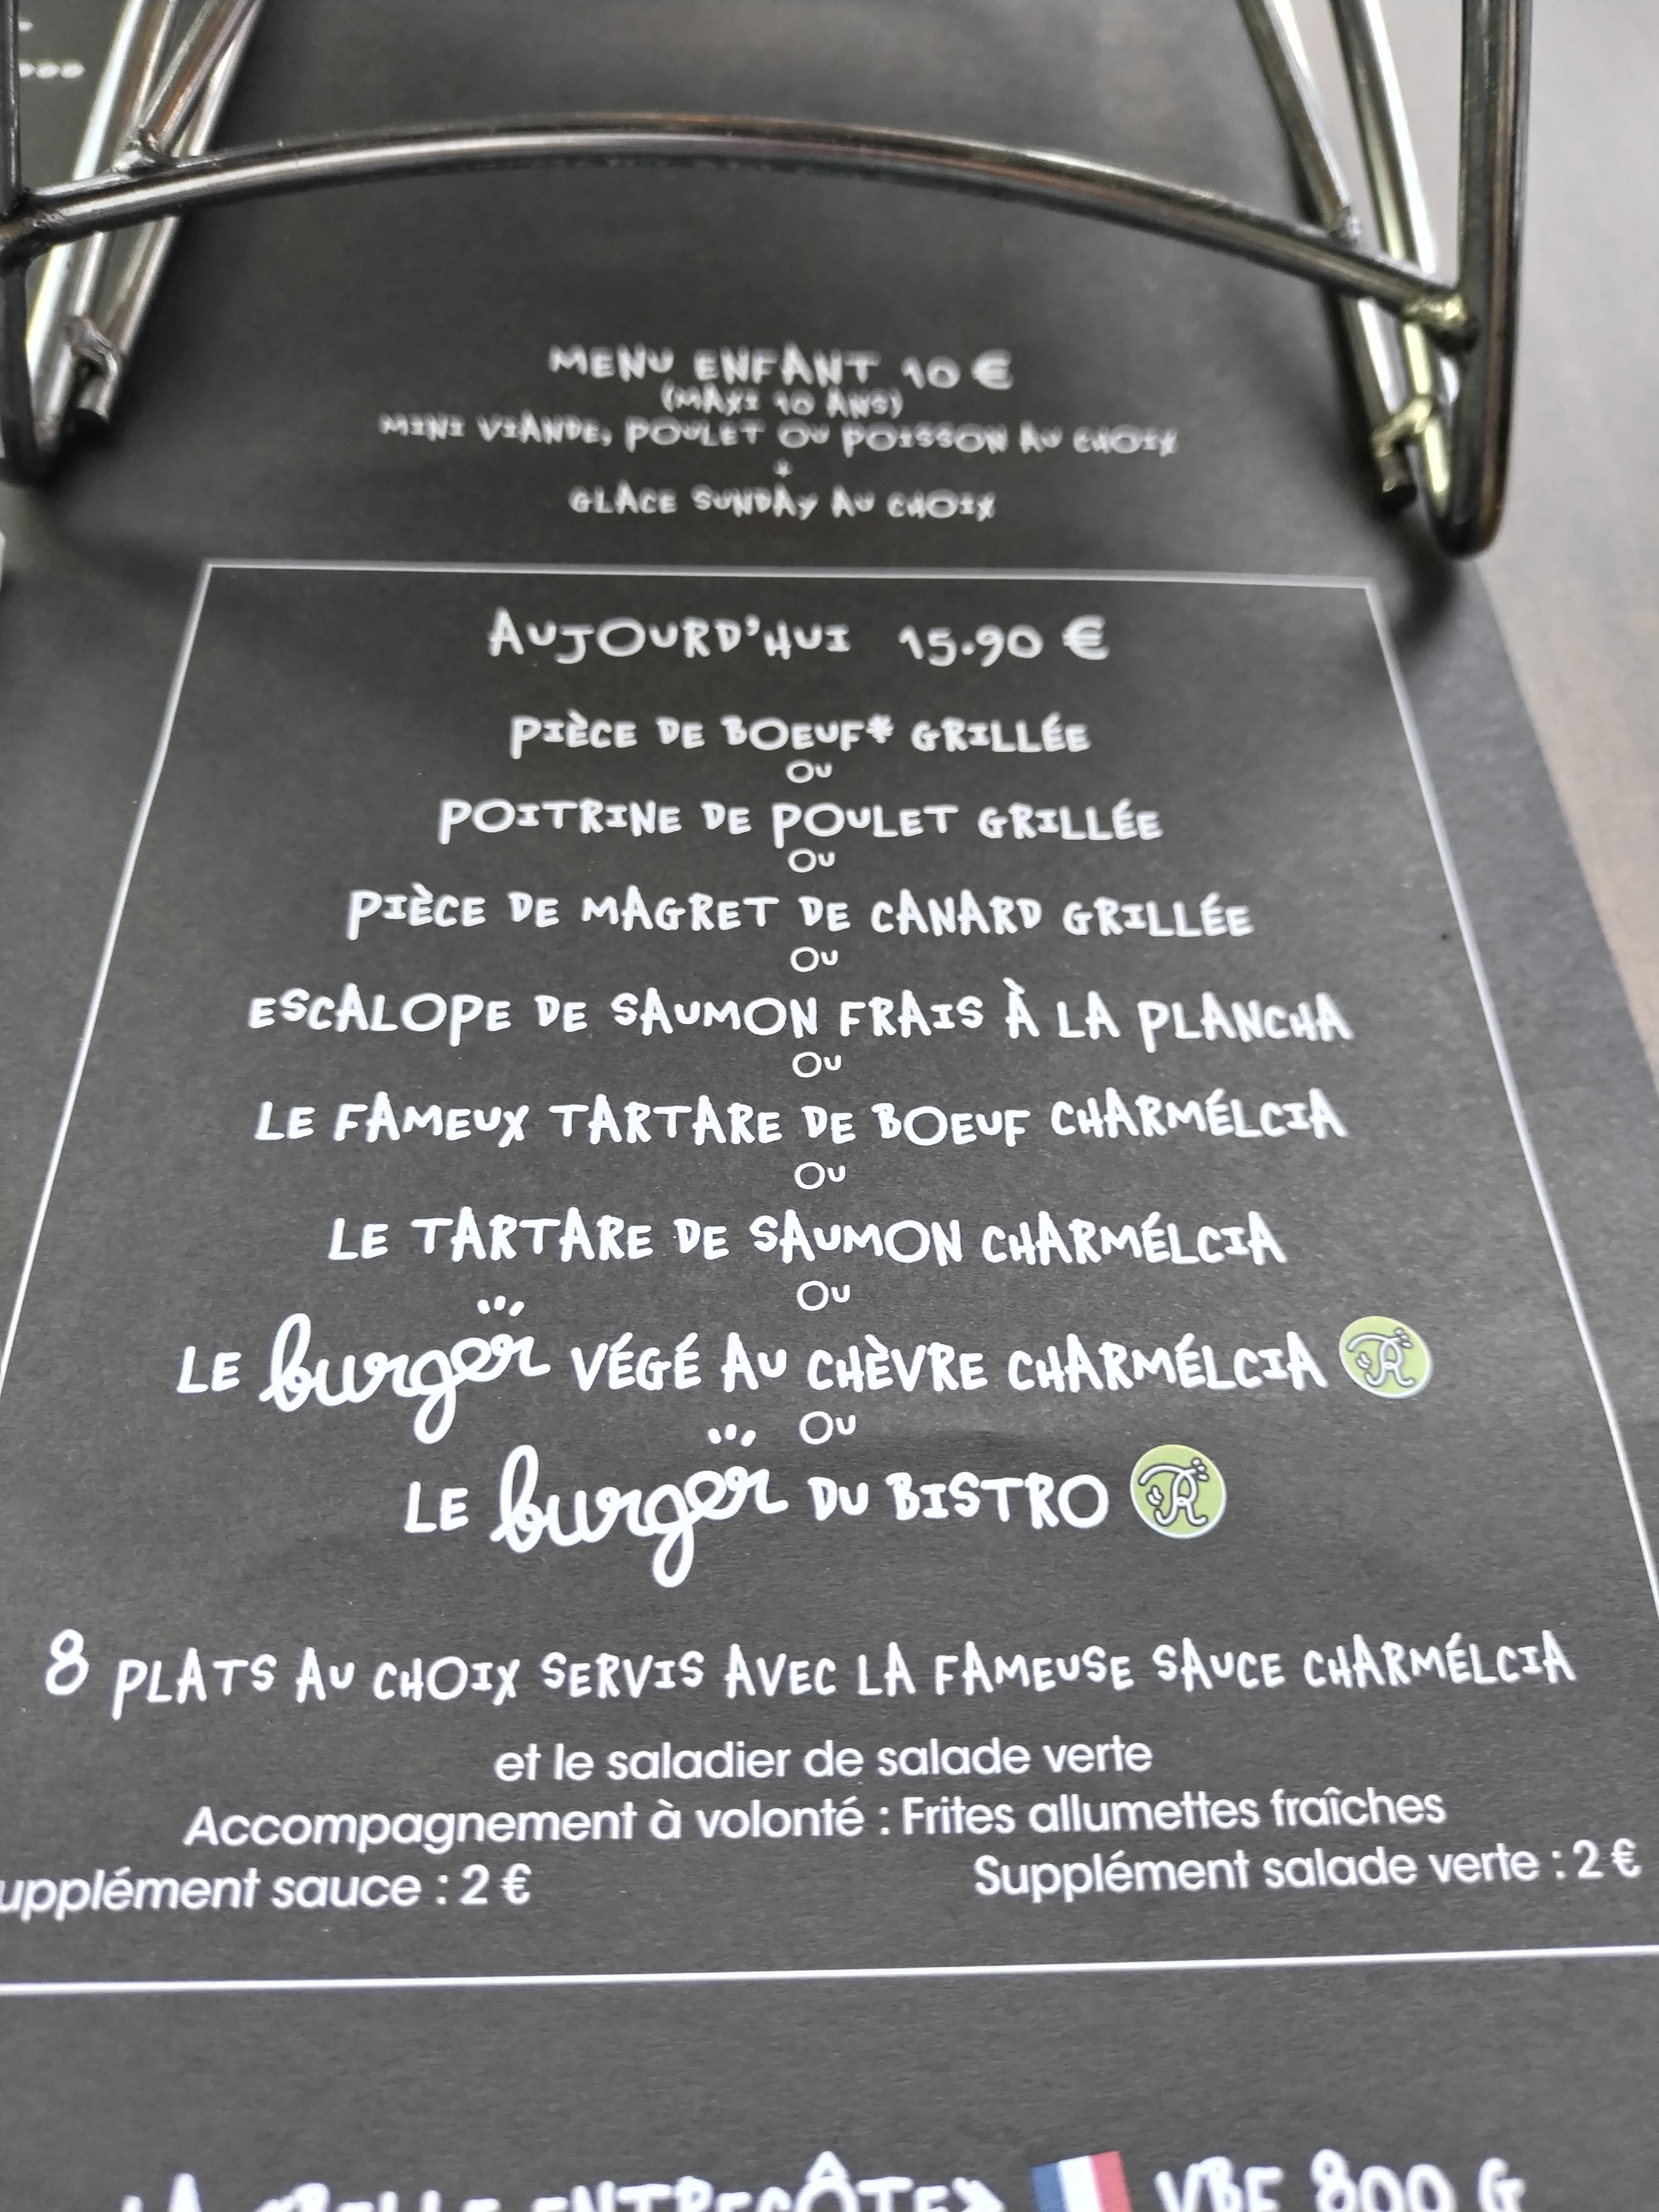 MENU ENFANT 10 €
(MAXI 10 ANS)
MINI VIANDE, POULET OU POISSON AU CHOIX
+
GLACE SUNDAY AU CHOIX
AUJOURD'HUI 15.90 €
PIÈCE DE BOEUF* GRILLÉE
OU
POITRINE DE POULET GRILLÉE
OU
PIÈCE DE MAGRET DE CANARD GRILLÉE
OU
ESCALOPE DE SAUMON FRAIS À LA PLANCHA
OU
LE FAMEUX TARTARE DE BOEUF CHARMÉLCIA
OU
LE TARTARE DE SAUMON CHARMÉLCIA
OU
LE burger VÉGÉ AU CHÈVRE CHARMÉLCIA R
OU
LE burger DU BISTRO R
8 PLATS AU CHOIX SERVIS AVEC LA FAMEUSE SAUCE CHARMÉLCIA
et le saladier de salade verte
Accompagnement à volonté : Frites allumettes fraîches
upplément sauce : 2 € Supplément salade verte : 2 €
LA «BELLE ENTRECÔTE» VBF 800 G